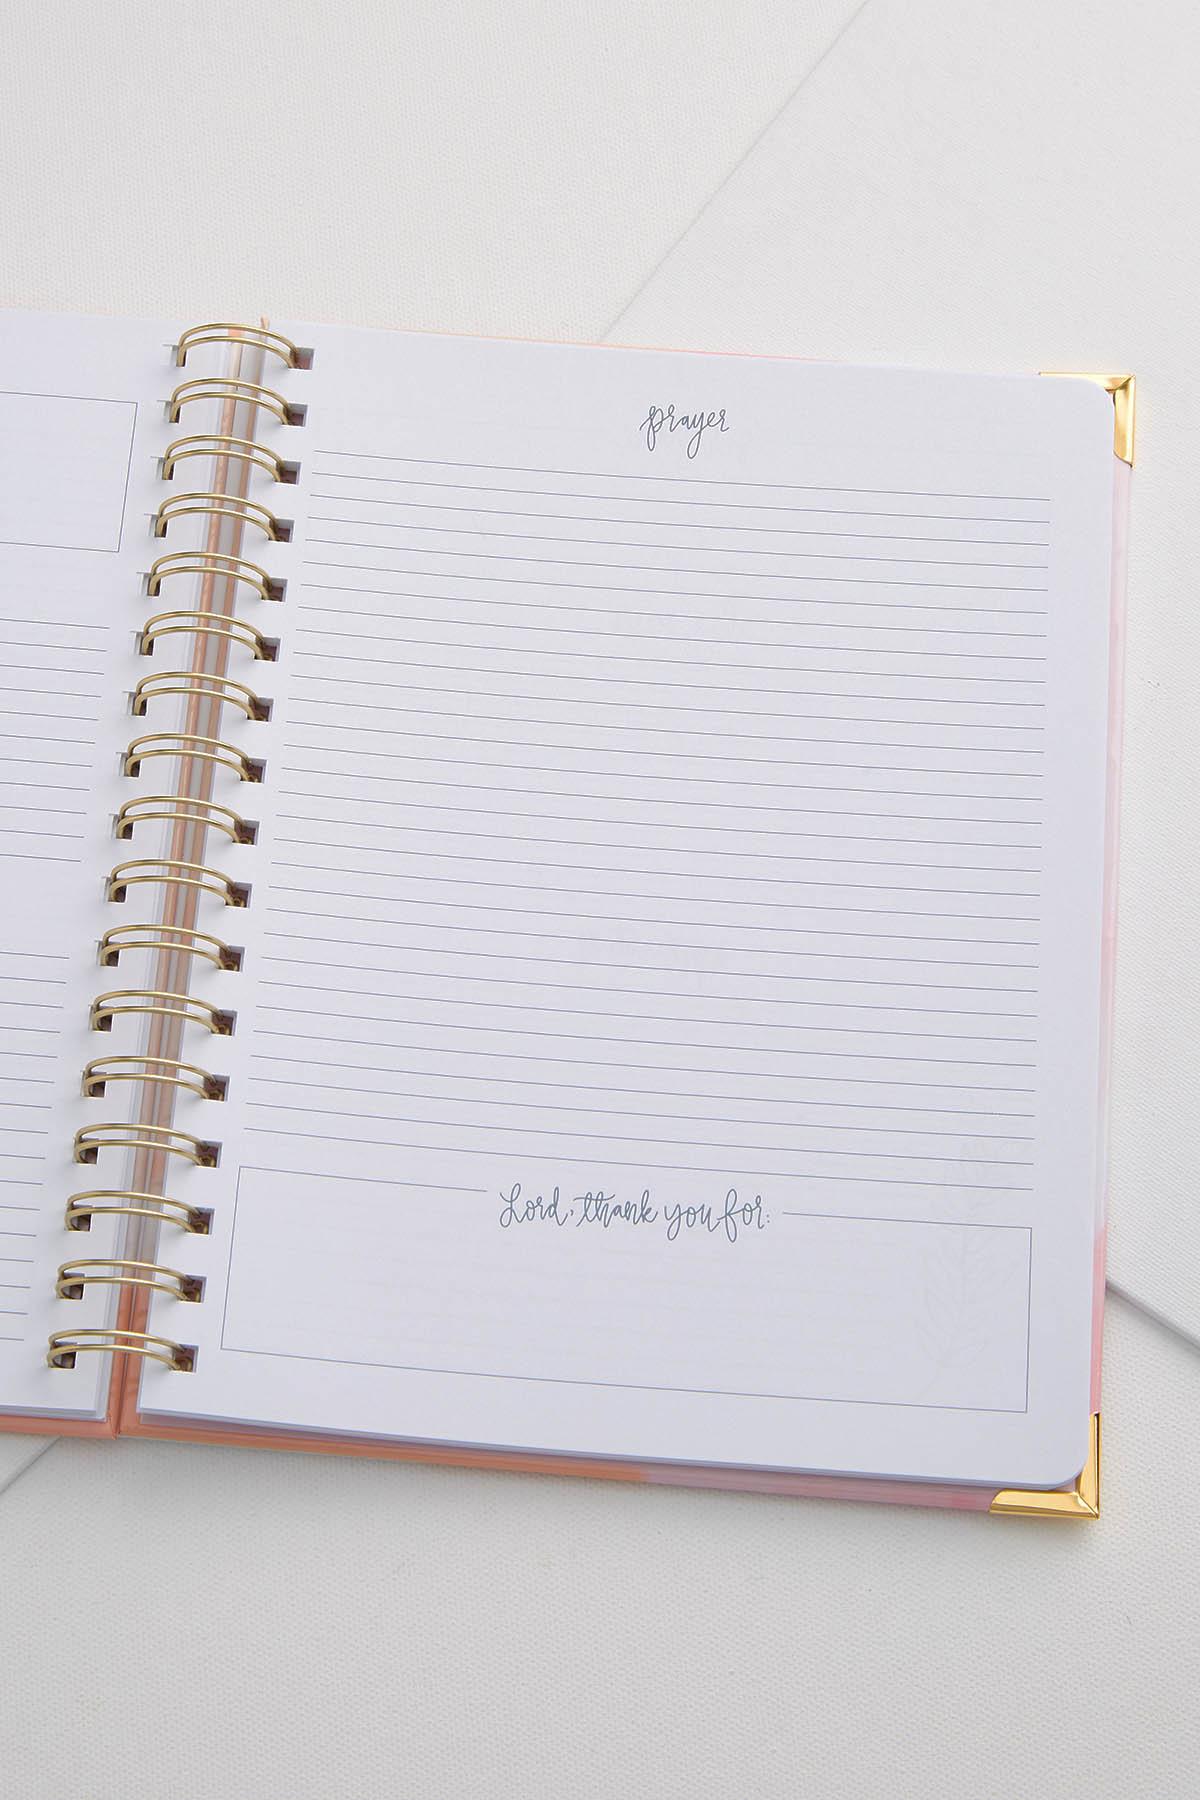 prayer
Lord, thank you for: